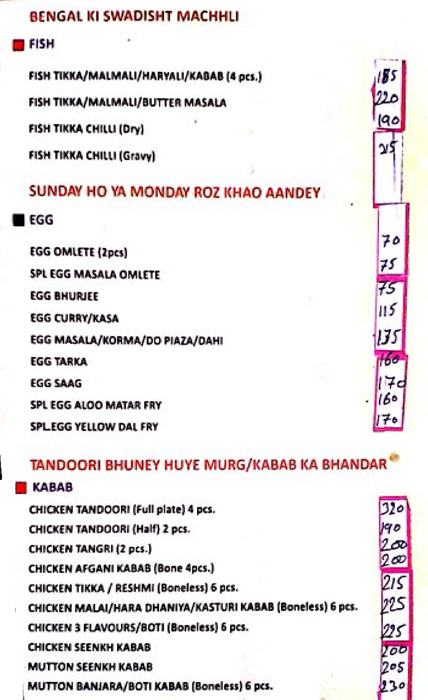 BENGAL KI SWADISHT MACHHLI
FISH
FISH TIKKA/MALMALI/HARYALI/KABAB (4 pcs.) 185
FISH TIKKA/MALMALI/BUTTER MASALA 220
FISH TIKKA CHILLI (Dry) 190
FISH TIKKA CHILLI (Gravy) 215
SUNDAY HO YA MONDAY ROZ KHAO AANDEY
EGG
EGG OMLETE (2pcs) 70
SPL EGG MASALA OMLETE 75
EGG BHURJEE 75
EGG CURRY/KASA 115
EGG MASALA/KORMA/DO PIAZA/DAHI 135
EGG TARKA 160
EGG SAAG 170
SPL EGG ALOO MATAR FRY 160
SPL.EGG YELLOW DAL FRY 170
TANDOORI BHUNEY HUYE MURG/KABAB KA BHANDAR
KABAB
CHICKEN TANDOORI (Full plate) 4 pcs. 320
CHICKEN TANDOORI (Half) 2 pcs. 190
CHICKEN TANGRI (2 pcs.) 200
CHICKEN AFGANI KABAB (Bone 4pcs.) 200
CHICKEN TIKKA / RESHMI (Boneless) 6 pcs. 215
CHICKEN MALAI/HARA DHANIYA/KASTURI KABAB (Boneless) 6 pcs. 225
CHICKEN 3 FLAVOURS/BOTI (Boneless) 6 pcs. 225
CHICKEN SEENKH KABAB 200
MUTTON SEENKH KABAB 205
MUTTON BANJARA/BOTI KABAB (Boneless) 6 pcs. 230